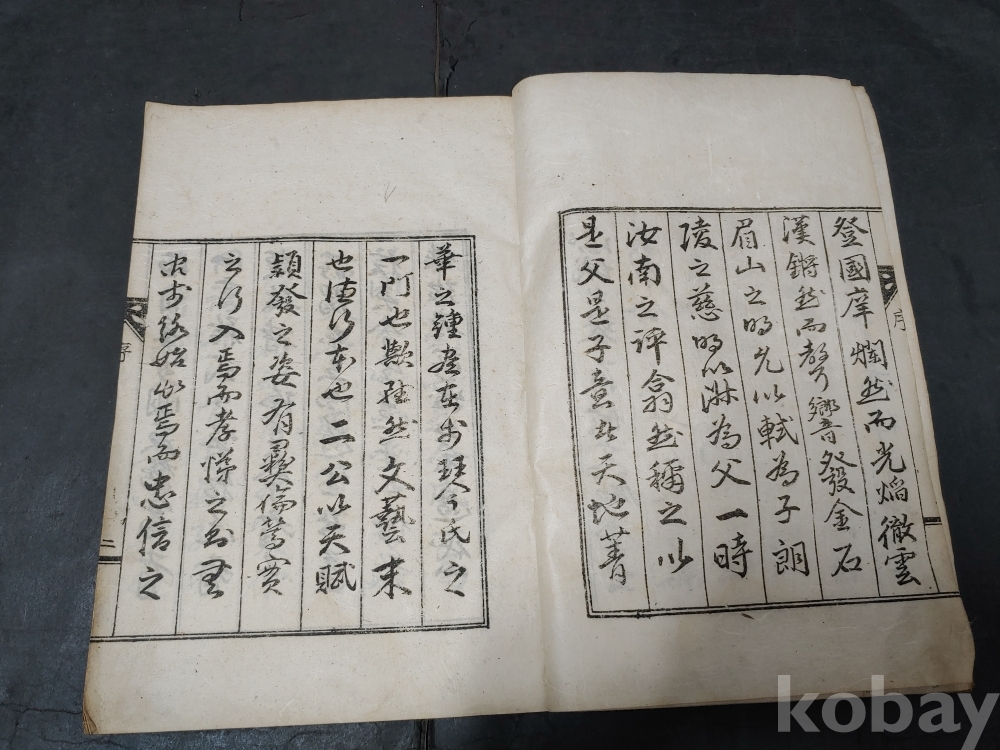 登國庠爛然而光焰徹雲
漢鏘然而聲響發金石
眉山之明允以軾為子朗
陵之慈明以淑為父一時
汝南之評翕然稱之以
是父是子意者天地菁
序
華之鍾盡在於琴氏之
一門也歟雖然文藝末
也德行本也二公以天賦
穎發之姿有彛倫篤實
之行入焉而孝悌之
於終始焉而忠信之
序
二
kobay